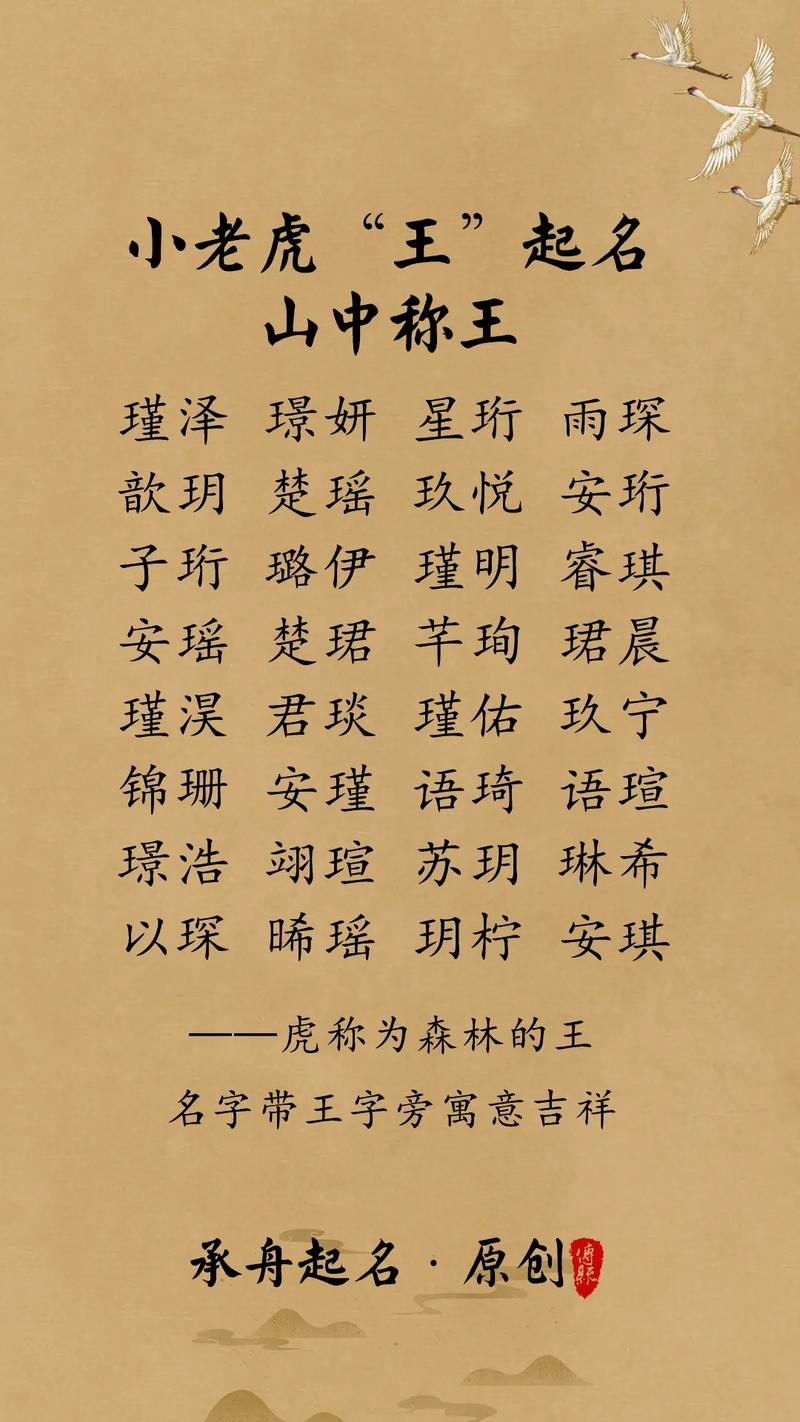 小老虎“王”起名
山中称王
瑾泽 璟妍 星珩 雨琛
歆玥 楚瑶 玖悦 安珩
子珩 璐伊 瑾明 睿琪
安瑶 楚珺 芊珣 珺晨
瑾淏 君琰 瑾佑 玖宁
锦珊 安瑾 语琦 语瑄
璟浩 翊瑄 苏玥 琳希
以琛 晞瑶 玥柠 安琪
——虎称为森林的王
名字带王字旁寓意吉祥
承舟起名·原创
傳統